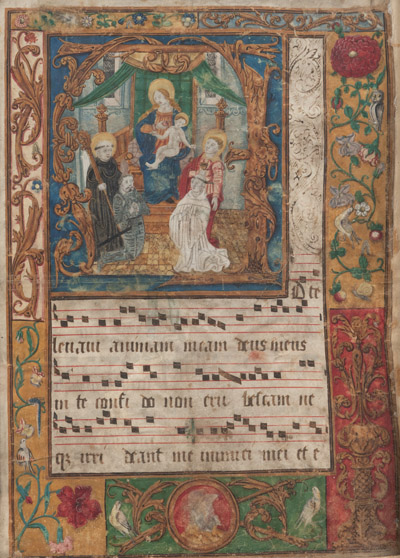 D te
levavi animam meam deus meus
in te confi do non eru bescam ne
qz irri deant me inimici mei et e